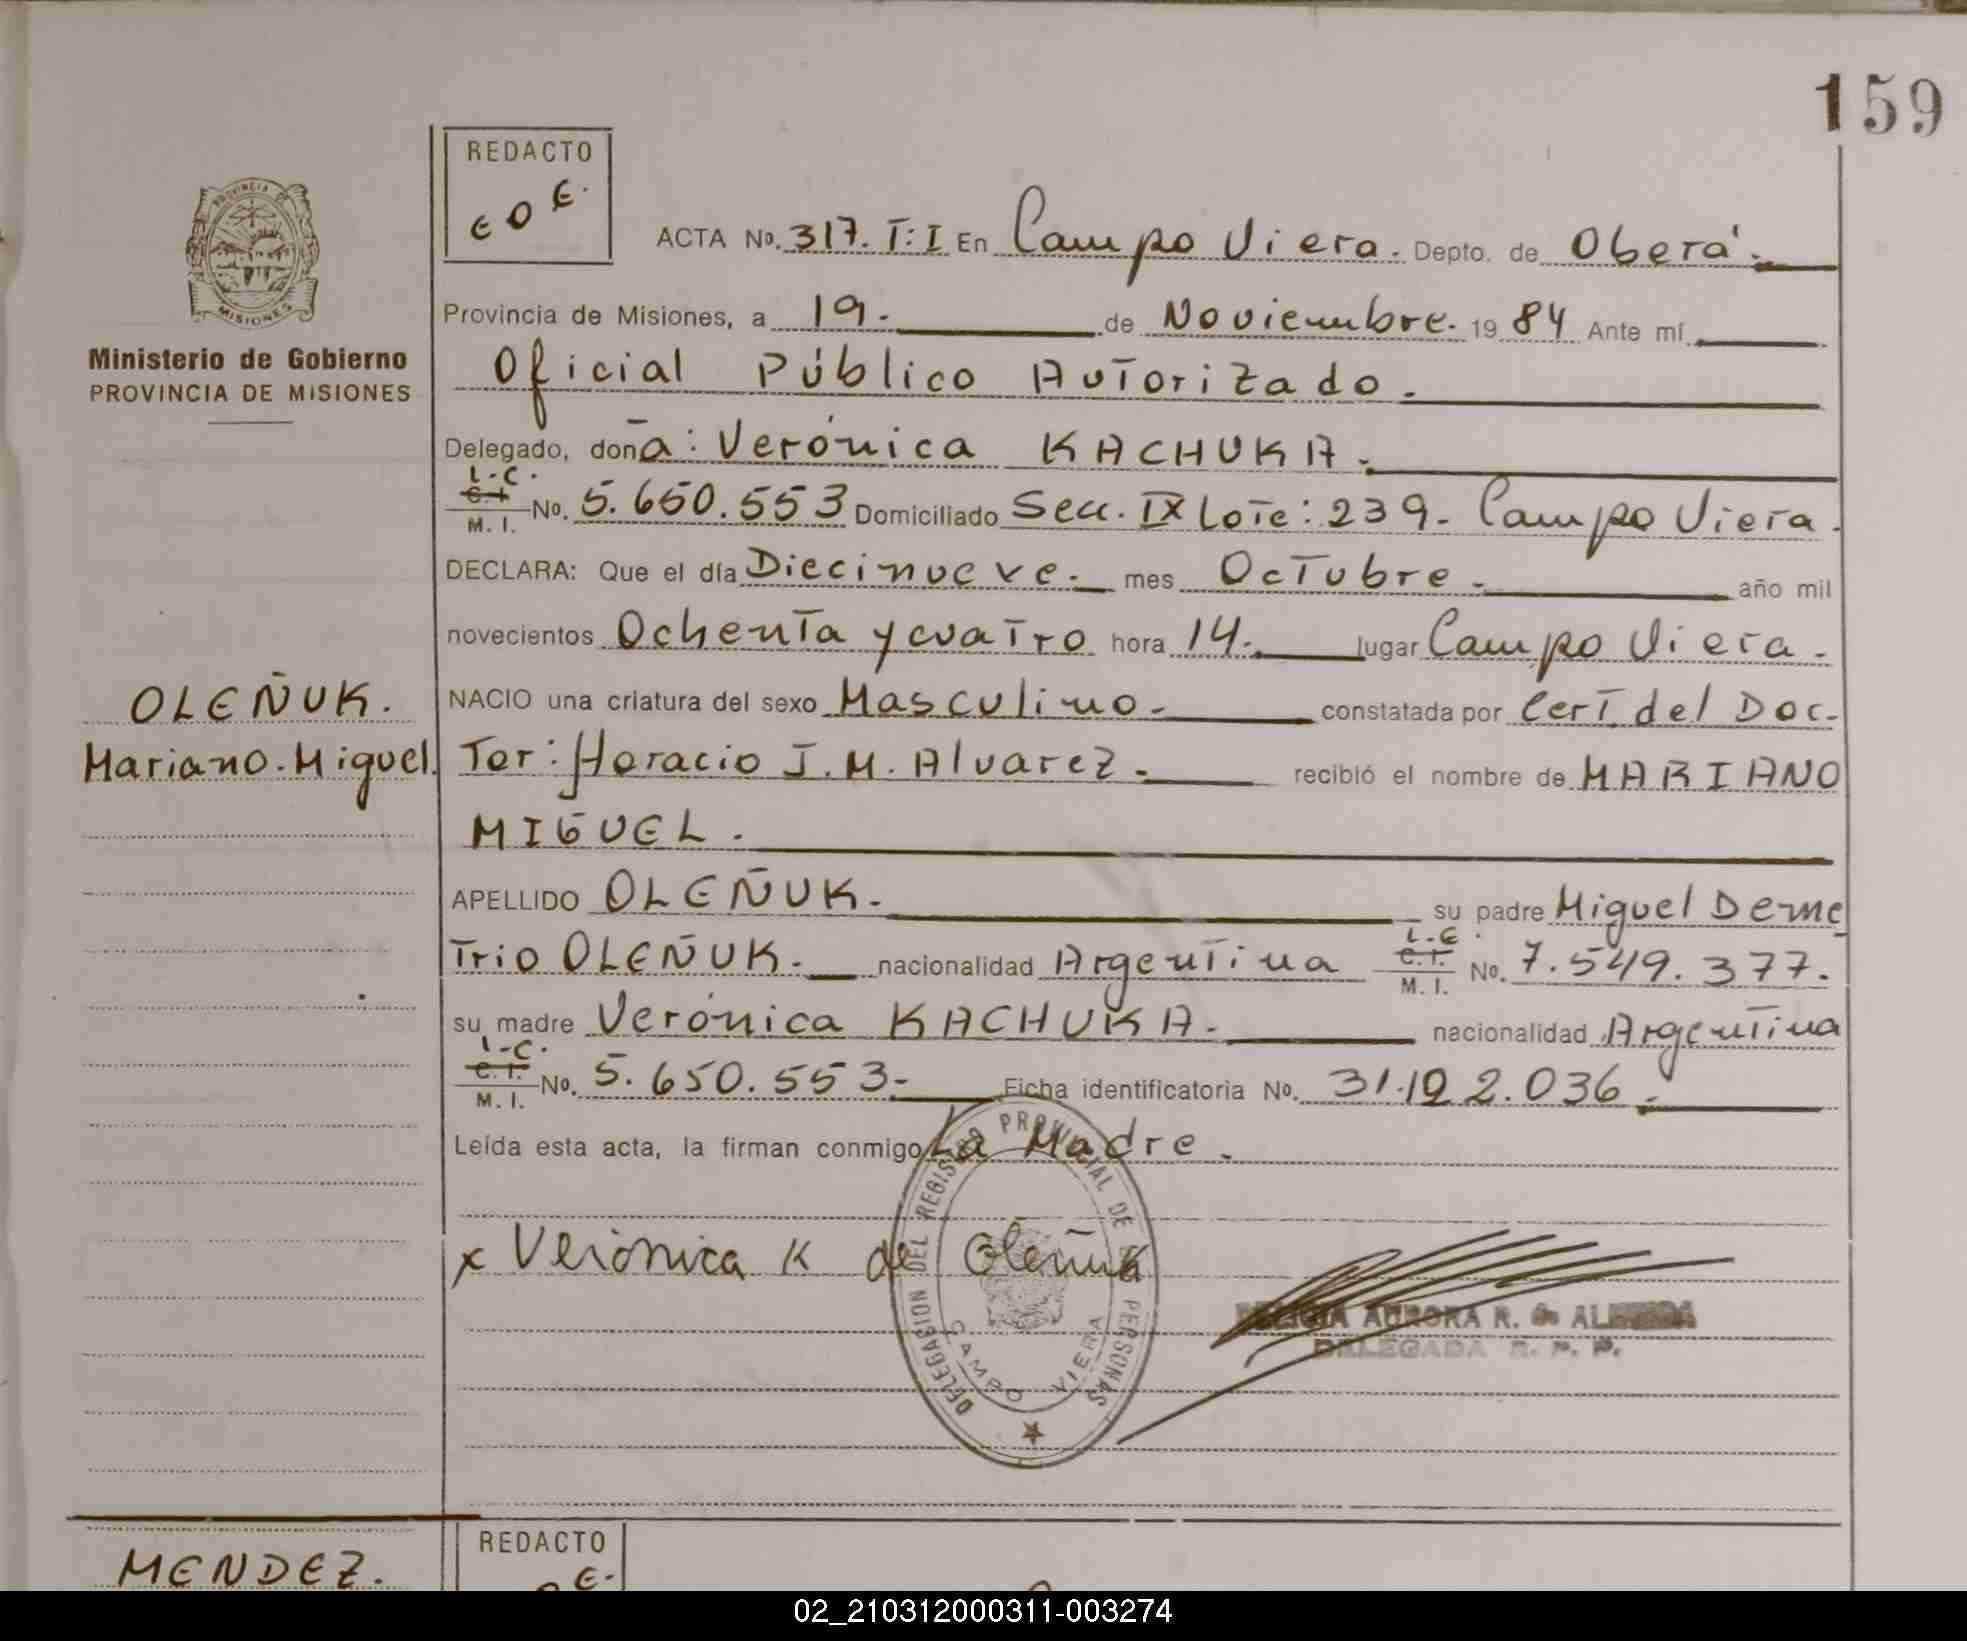 159
REDACTO
E O E.
ACTA No. 317. T: I En Campo Viera. Depto. de Oberá.
Provincia de Misiones, a 19. de Noviembre. 19 84 Ante mí
Ministerio de Gobierno
PROVINCIA DE MISIONES
Oficial Público Autorizado.
Delegado, doña: Verónica KACHUKA.
L.C.
C.I.
M. I. No. 5.650.553 Domiciliado Secc. IX Lote: 239. Campo Viera.
DECLARA: Que el día Diecinueve. mes Octubre. año mil
novecientos Ochenta y cuatro hora 14. lugar Campo Viera.
OLEÑUK.
Mariano. Miguel.
NACIO una criatura del sexo Masculino. constatada por Cert. del Doc-
Tor: Horacio J. M. Alvarez. recibió el nombre de MARIANO
MIGUEL.
APELLIDO OLEÑUK. su padre Miguel Deme
Trio OLEÑUK. nacionalidad Argentina L.E. C.I. M. I. No. 7.549.377.
su madre Verónica KACHUKA. nacionalidad Argentina
L-C.
C.I.
M. I. No. 5.650.553- Ficha identificatoria No.
Leída esta acta, la firman conmigo La Madre.
x Verónica K de Oleñuk
DELEGACION DEL REGISTRO PROVINCIAL DE PERSONAS
CAMPO VIERA
AURORA R. de
DELEGADA R. P. P.
MENDEZ.
REDACTO
E.
02_210312000311-003274